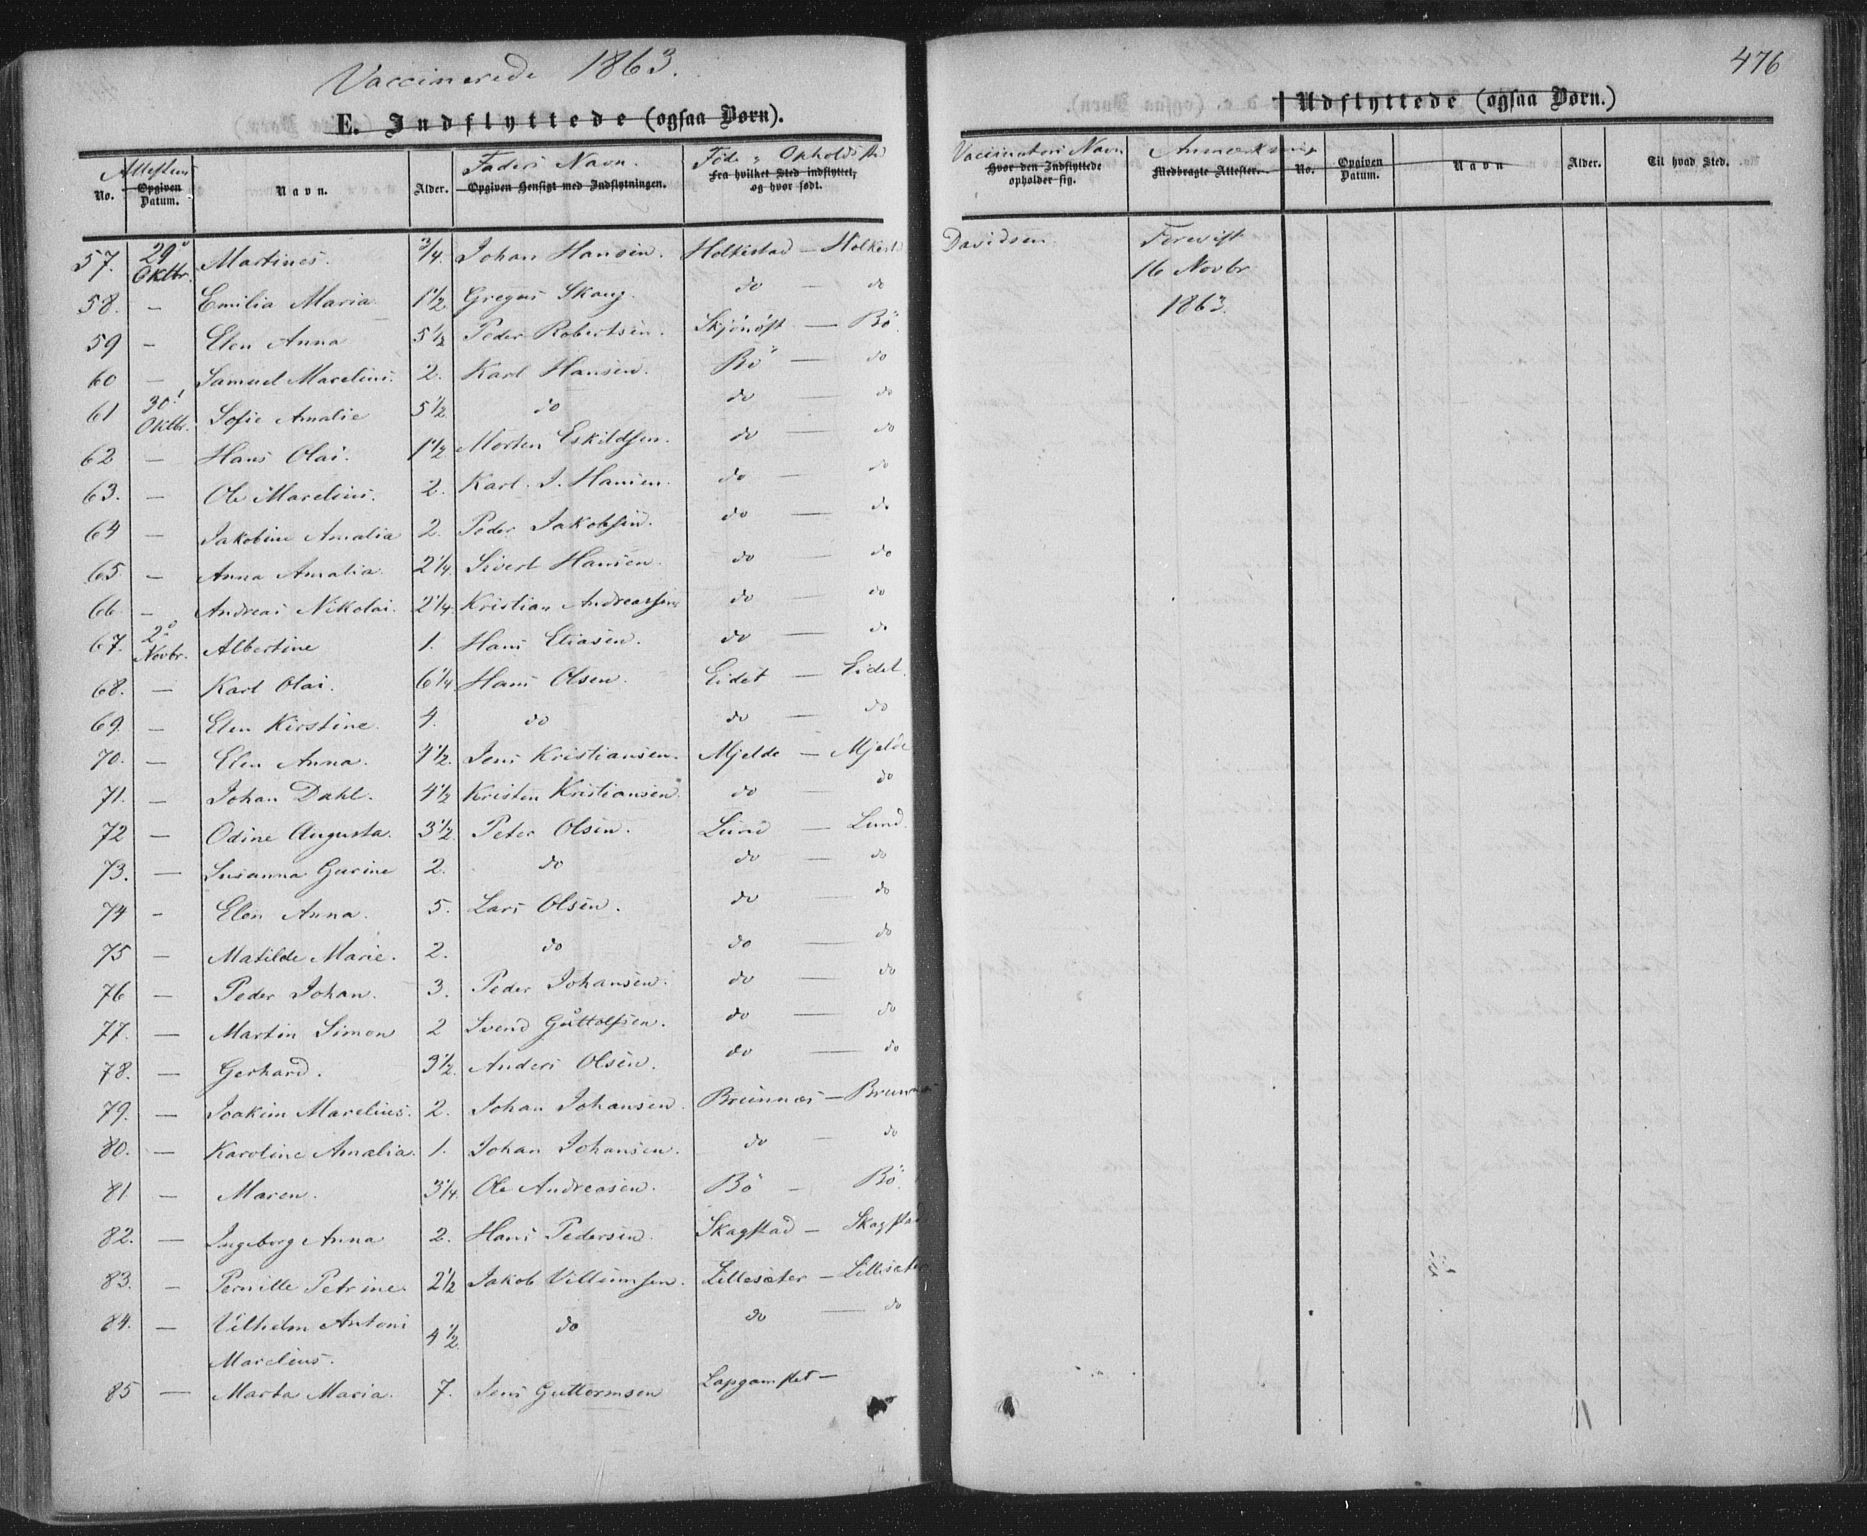 Vaccinerede 1863.
E. Indflyttede (ogsaa Børn).
No. | Attestens Opgiven Datum. | Navn. | Alder. | Faders Navn. Opgiven Hensigt med Indflytningen. | Føde- Opholdsted Fra hvilket Sted indflyttet, og hvor født.
57. 29 Oktbr. Martines. 3/4. Johan Hansen. Holkestad — Holkest
58. — Emilia Maria 1 1/2 Gregus Skaug. do — do
59 — Elen Anna 5 1/2 Peder Robertsen. — Bö.
60 — Samuel Marelius. 2. Karl Hansen. Bö — do
61 30 Oktbr. Sofie Amalie 5 1/2 do do — do
62 — Hans Olai. 1 1/2 Morten Eskildsen. do — do
63. — Ole Marelius. 2. Karl. J. Hansen. do — do
64 — Jakobine Amalia 2. Peder Jakobsen. do — do
65. — Anna Amalia. 2 1/4. Sivert Hansen. do — do
66. — Andreas Nikolai. 2 1/4. Kristian Andreassen do — do
67. 2 Novbr. Albertine 1. Hans Eliasen. do — do
68. — Karl Olai. 6 1/4 Hans Olsen. Eidet — Eidet.
69. — Elen Kirstine. 4. do do — do
70. — Elen Anna. 4 1/2. Jens Kristiansen. Mjelde — Mjelde
71. — Johan Dahl. 4 1/2 Kristen Kristiansen. do — do
72 — Odine Augusta. 3 1/2. Peter Olsen. Lund — Lund.
73. — Susanna Gurine 2. do do — do
74 — Elen Anna. 5. Lars Olsen. do — do
75 — Matilde Marie. 2. do do — do
76 — Peder Johan. 3. Peder Johansen. do — do
77. — Martin Simon 2 Svend Guttolfsen. do — do
78. — Gerhard. 3 1/2. Anders Olsen. do — do
79. — Joakim Marelius. 2. Johan Johansen. Brunnæs — Brunnæs
80. — Karoline Amalia. 1. Johan Johansen. do — do
81 — Maren. 3 1/4. Ole Andreasen. Bö — Bö.
82. — Ingeborg Anna 2. Hans Pedersen. Skagstad — Skagstad
83. — Pernille Petrine. 2 1/2 Jakob Villumsen. Lillesæter — Lillesæter
84. — Vilhelm Antoni 4 1/2. do do — do
Marelius.
85 — Marta Maria. 7. Jens Guttormsen —
476
Udflyttede (ogsaa Børn.)
Vaccinatørs Navn Hvor den Indflyttede opholder sig. | Anmærkning Medbragte Attester. | No. | Opgiven Datum. | Navn | Alder. | Til hvad Sted.
Davidsen Forevist
16 Novbr
1863.